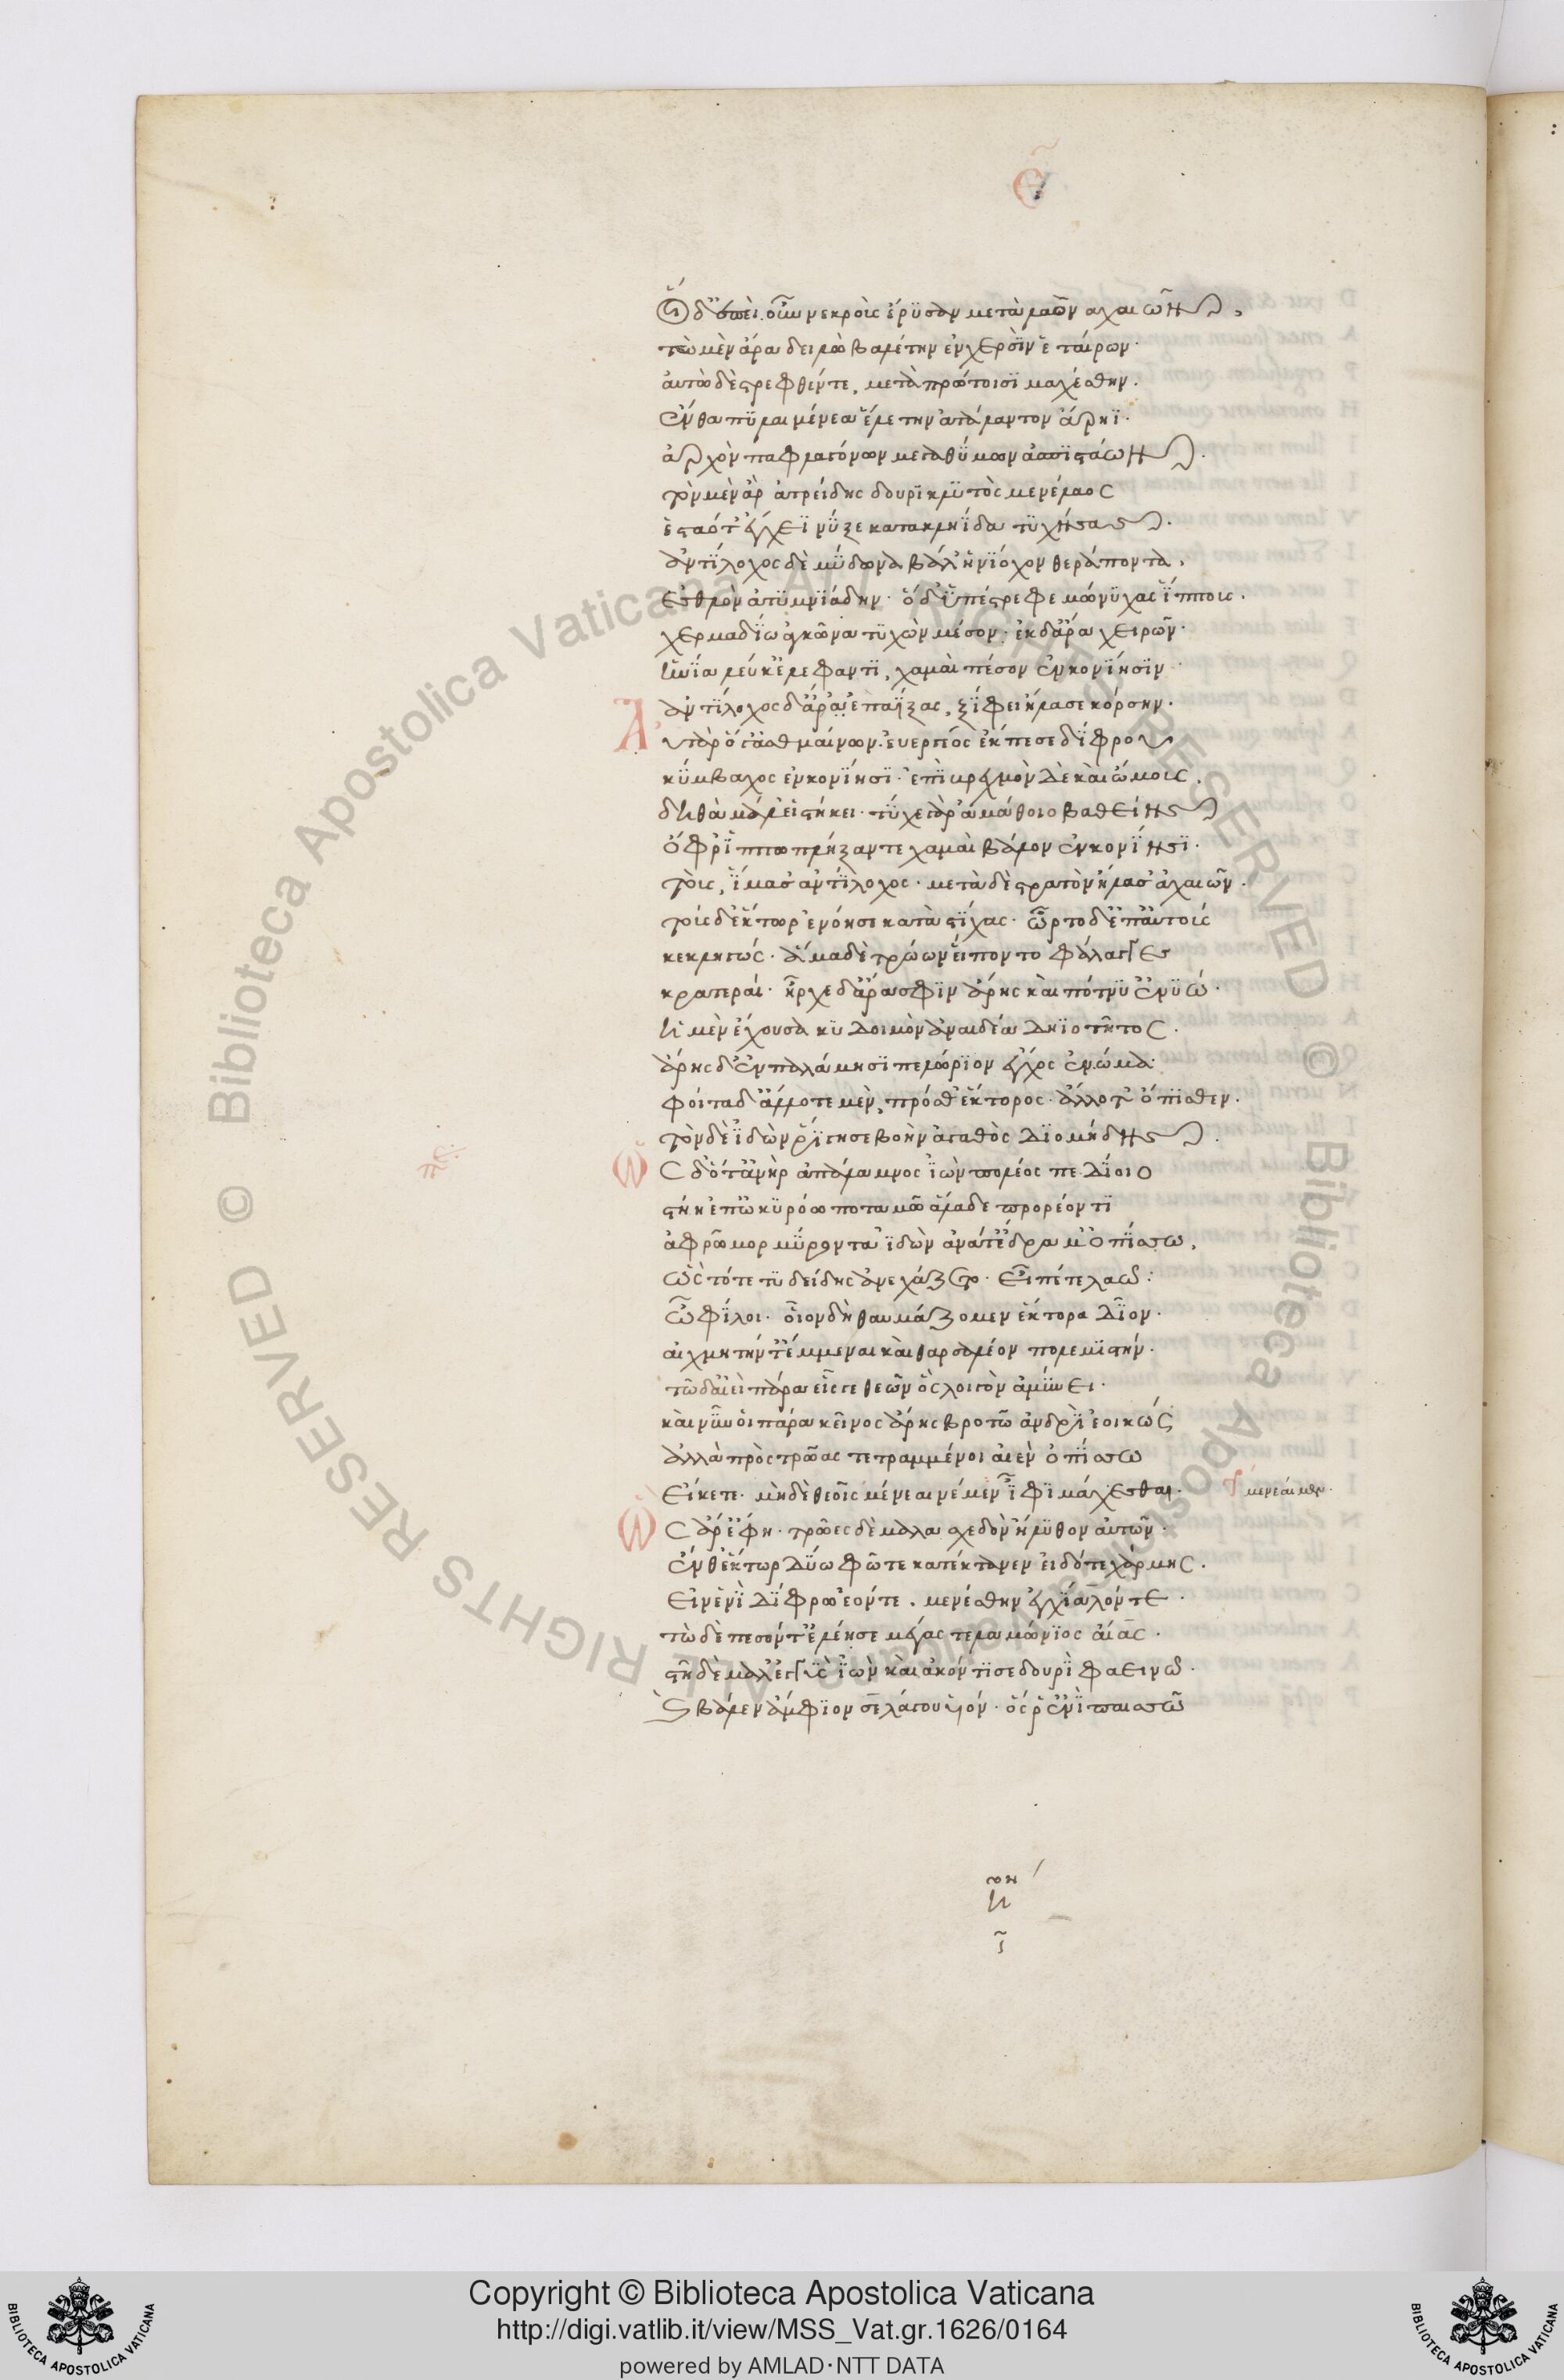 ε̄
Οἱ δ' ἐπεὶ οὖν νεκροὺς ἔρυσαν μετὰ λαὸν ἀχαιῶν,
τὼ μὲν ἄρα δειλὼ βαλέτην ἐν χερσὶν ἑταίρων·
αὐτὼ δὲ στρεφθέντε, μετὰ πρώτοισι μαχέσθην.
ἔνθα πυλαιμένεα ἑλέτην ἀτάλαντον ἄρηϊ·
ἀρχὸν παφλαγόνων μεγαθύμων ἀσπιστάων.
τὸν μὲν ἄρ' ἀτρείδης δουρικλυτὸς μενέλαος
ἑσταότ' ἔγχεϊ νύξε κατακληΐδα τυχήσας.
ἀντίλοχος δὲ μύδωνα βάλ' ἡνίοχον θεράποντα,
ἐσθλὸν ἀτυμνιάδην· ὁ δ' ὑπέστρεφε μώνυχας ἵππους.
χερμαδίω ἀγκῶνα τυχὼν μέσον· ἐκ δ' ἄρα χειρῶν·
ἡνία λεύκ' ἐλέφαντι, χαμαὶ πέσον ἐν κονίησιν
ἀντίλοχος δ' ἄρ' ἐπαΐξας, ξίφει ἤλασε κόρσην.
Αὐτὰρ ὅγ' ἀσθμαίνων· εὐεργέος ἔκπεσε δίφρου
κύμβαχος ἐν κονίησι· ἐπὶ βρεχμόν δὲ καὶ ὤμους.
δηθὰ μάλ' εἱστήκει· τύχε γὰρ ἀμάθοιο βαθείης
ὄφρ' ἵππω πλήξαντε χαμαὶ βάλον ἐν κονίησι·
τοὺς, ἵμασ' ἀντίλοχος· μετὰ δὲ στρατὸν ἤλασ' ἀχαιῶν.
τοὺς δ' ἕκτωρ ἐνόησε κατὰ στίχας· ὦρτο δ' ἐπ' αὐτοὺς
κεκληγώς· ἅμα δὲ τρώων εἵποντο φάλαγγες
κρατεραί· ἦρχε δ' ἄρα σφιν ἄρης καὶ πότνι' ἐνυώ·
ἡ μὲν ἔχουσα κυδοιμὸν ἀναιδέα δηϊοτῆτος.
ἄρης δ' ἐν παλάμησι πελώριον ἔγχος ἐνώμα·
φοίτα δ' ἄλλοτε μὲν, πρόσθ' ἕκτορος· ἄλλοτ' ὄπισθεν.
τὸν δὲ ἰδὼν ῥίγησε βοὴν ἀγαθὸς διομήδης.
Ὡς δ' ὅτ' ἀνὴρ ἀπάλαμνος ἰὼν πολέος πεδίοιο
στήη ἐπ' ὠκυρόω ποταμῶ ἅλαδε προρέοντι
ἀφρῶ μορμύροντα ἰδὼν ἀνά τ' ἔδραμ' ὀπίσσω,
ὣς τότε τυδείδης ἀνεχάζετο· εἶπέ τε λαῶ:
ὦ φίλοι· οἷον δὴ θαυμάζομεν ἕκτορα δῖον·
αἰχμητήν τ' ἔμμεναι καὶ θαρσαλέον πολεμιστήν.
τῶ δ' αἰεὶ πάρα εἷς γε θεῶν ὃς λοιγὸν ἀμύνει·
καὶ νῦν οἱ πάρα κεῖνος ἄρης βροτῶ ἀνδρὶ ἐοικώς
ἀλλὰ πρὸς τρῶας τετραμμένοι αἰὲν ὀπίσσω
εἴκετε· μὴ δὲ θεοῖς μενεαινέμεν ἶφι μάχεσθαι.
Ὣς ἄρ' ἔφη· τρῶες δὲ μάλα σχεδὸν ἤλυθον αὐτῶν·
ἔνθ' ἕκτωρ δύω φῶτε κατέκτανεν εἰδότε χάρμης.
εἰν ἑνὶ δίφρω ἐόντε. μενέσθην ἀγχίαλόν τε·
τὼ δὲ πεσόντ' ἐλέησε μέγας τελαμώνιος αἴας.
στῆ δὲ μάλ' ἐγγὺς ἰὼν καὶ ἀκόντισε δουρὶ φαεινῶ·
καὶ βάλεν ἄμφιον σελάγου υἱόν· ὅς ῥ' ἐνὶ παισῶ
Copyright © Biblioteca Apostolica Vaticana
http://digi.vatlib.it/view/MSS_Vat.gr.1626/0164
powered by AMLAD·NTT DATA